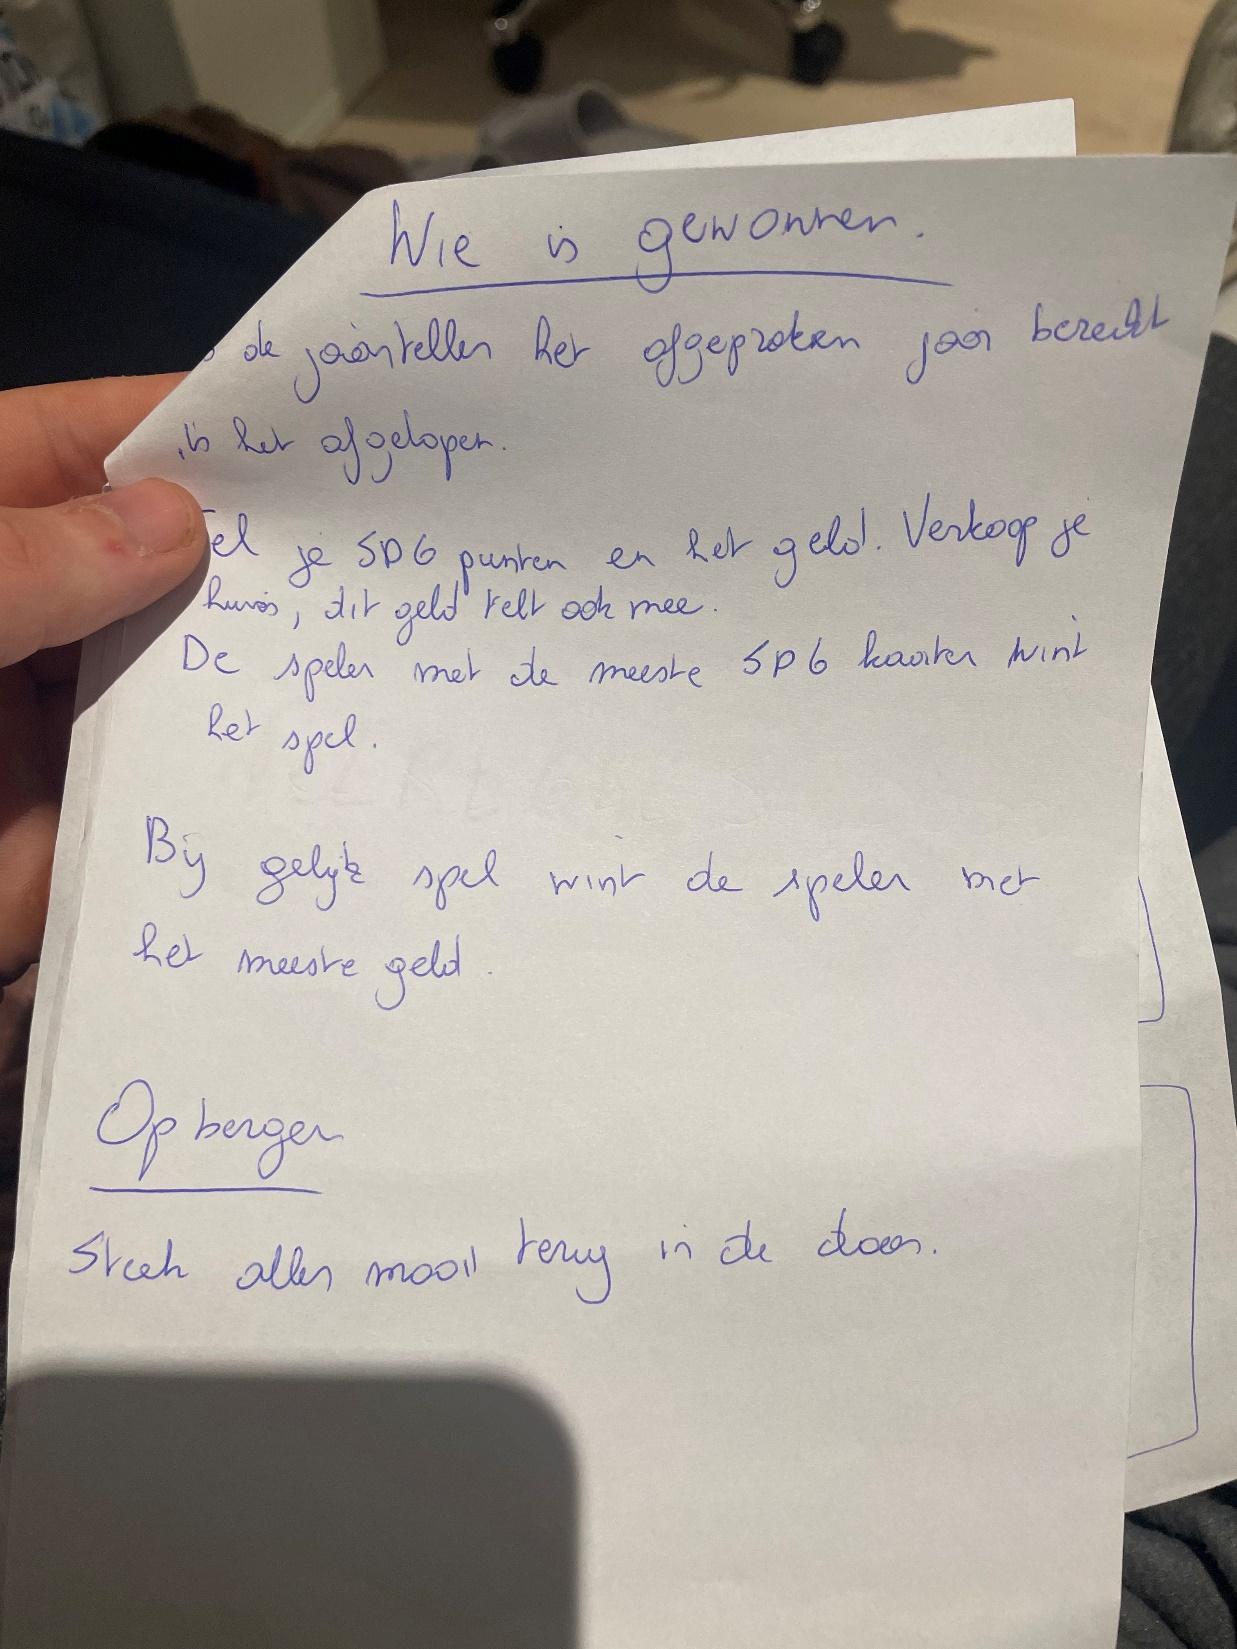 Wie is gewonnen.
de jaarteller het afgeproken jaar bereikt
is het afgelopen.
Tel je SDG punten en het geld. Verkoop je
huis, dit geld telt ook mee.
De speler met de meeste SDG kaarten wint
het spel.
Bij gelijk spel wint de speler met
het meeste geld.
Opbergen
Steek alles mooi terug in de doos.